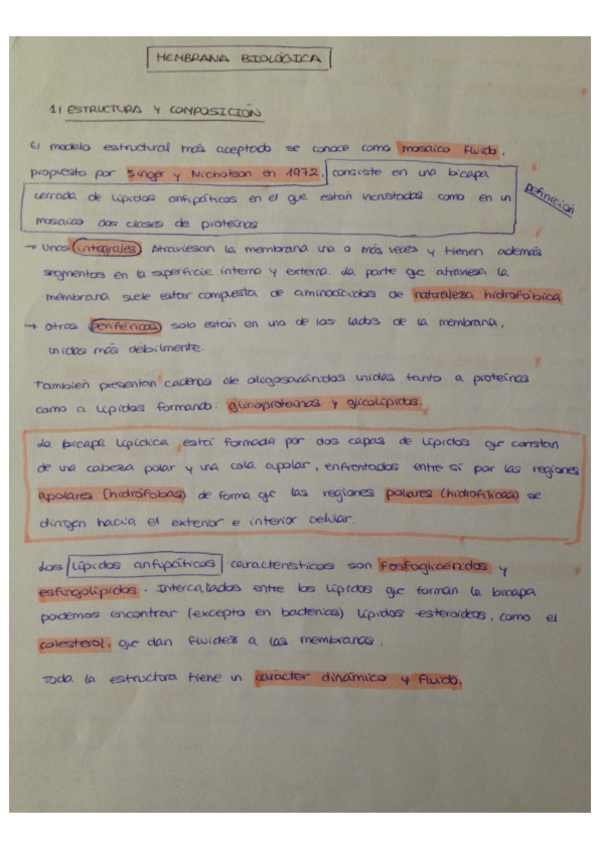 MEMBRANA BIOLÓGICA
1) ESTRUCTURA Y COMPOSICIÓN
El modelo estructural más aceptado se conoce como mosaico fluido,
propuesto por Singer y Nicholson en 1972, consiste en una bicapa
cerrada de lípidos anfipáticos en el que están incrustados como en un
mosaico dos clases de proteínas
Definición
→ Unas integrales) Atraviesan la membrana una o más veces y tienen además
segmentos en la superficie interna y externa. La parte que atraviesa la
membrana suele estar compuesta de aminoácidos de naturaleza hidrofóbica
→ otras periféricas) solo están en uno de los lados de la membrana,
unidas más débilmente.
También presentan cadenas de oligosacáridos unidas tanto a proteínas
como a lípidos formando: glucoproteínas y glicolípidos.
La bicapa lipídica está formada por dos capas de lípidos que constan
de una cabeza polar y una cola apolar, enfrentados entre sí por las regiones
apolares (hidrófobas) de forma que las regiones polares (hidrofílicas) se
dirigen hacia el exterior e interior celular.
Los lípidos anfipáticos característicos son fosfoglicéridos y
esfingolípidos. Intercalados entre los lípidos que forman la bicapa
podemos encontrar (excepto en bacterias) lípidos esteroideos, como el
colesterol, que dan fluidez a las membranas.
Toda la estructura tiene un carácter dinámico y fluido.